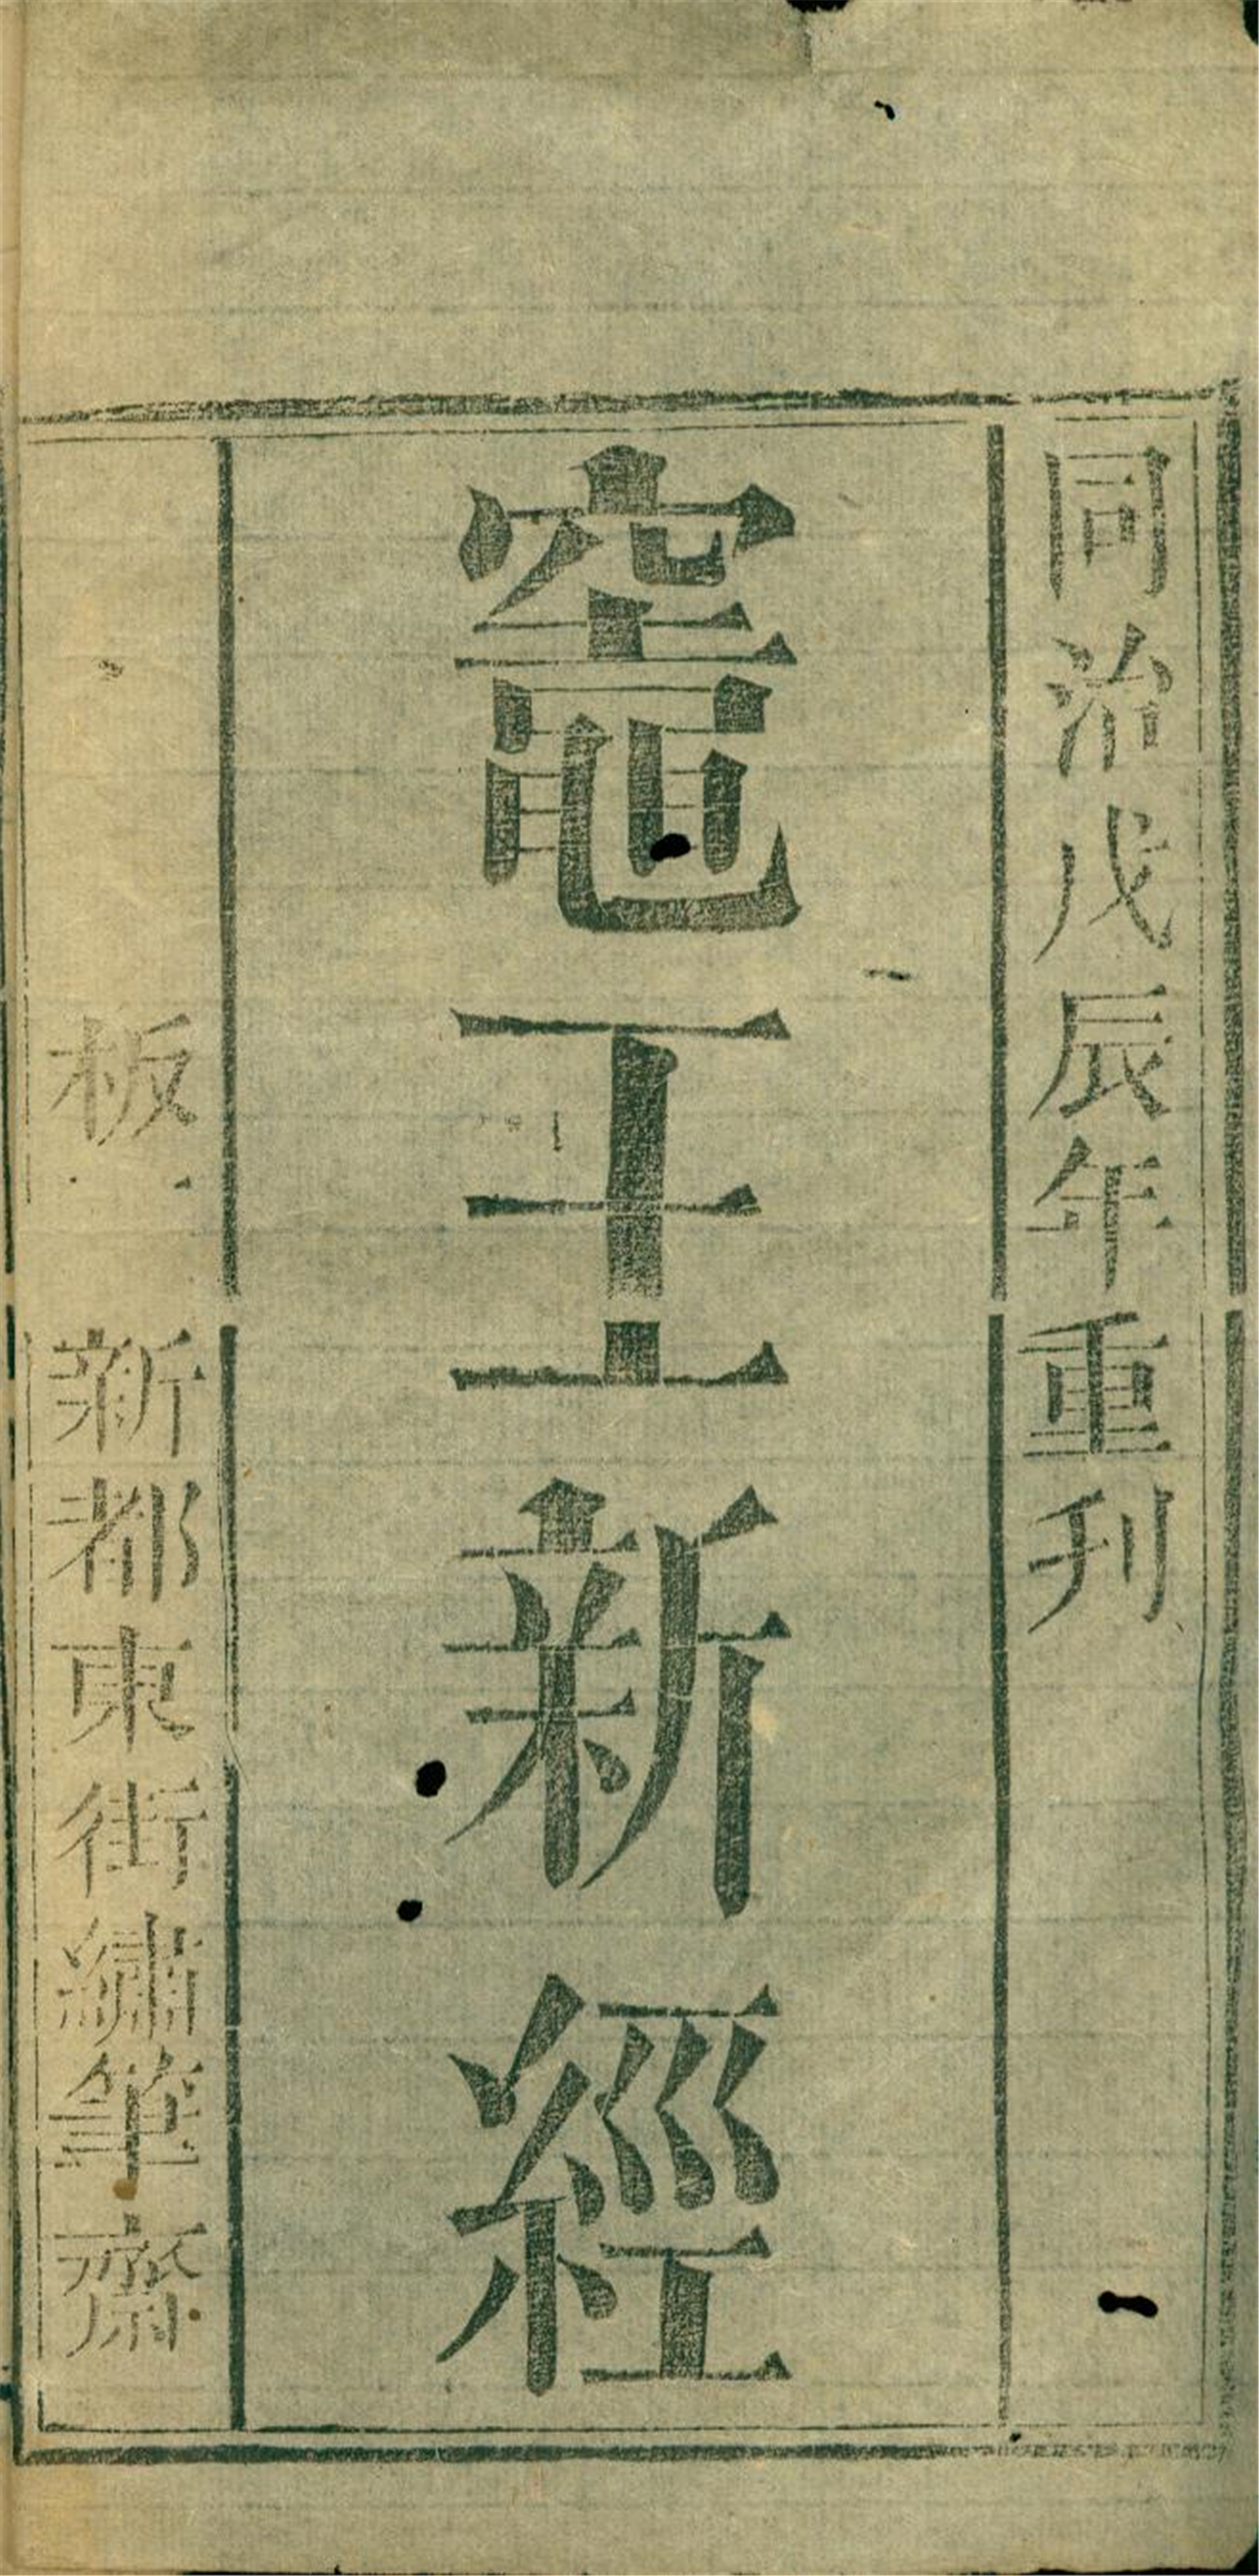 同治戊辰年重刊
竈王新經
板 新都東街繡筆齋